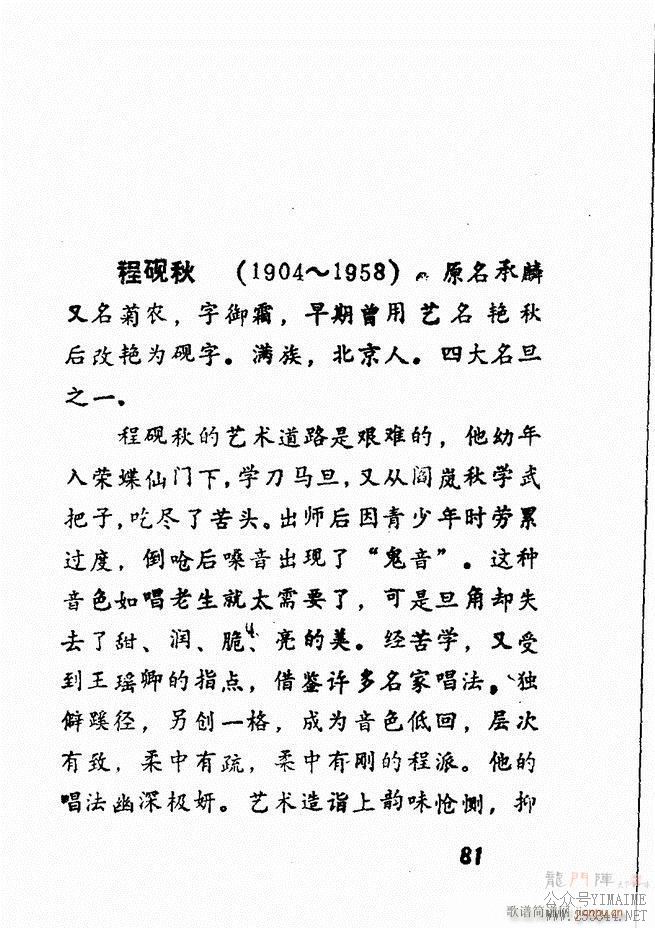 程砚秋 (1904～1958)。原名承麟
又名菊农，字御霜，早期曾用艺名艳秋
后改艳为砚字。满族，北京人。四大名旦
之一.
程砚秋的艺术道路是艰难的，他幼年
入荣蝶仙门下,学刀马旦,又从阎岚秋学武
把子,吃尽了苦头。出师后因青少年时劳累
过度，倒呛后嗓音出现了“鬼音”。这种
音色如唱老生就太需要了，可是旦角却失
去了甜、润、脆、亮的美。经苦学，又受
到王瑶卿的指点，借鉴许多名家唱法。独
僻蹊径，另创一格，成为音色低回，层次
有致，柔中有疏，柔中有刚的程派。他的
唱法幽深极妍。艺术造诣上韵味怆恻，抑
81
龍門陣
公众号YIMAIME
歌谱简谱网
www.293344.NET